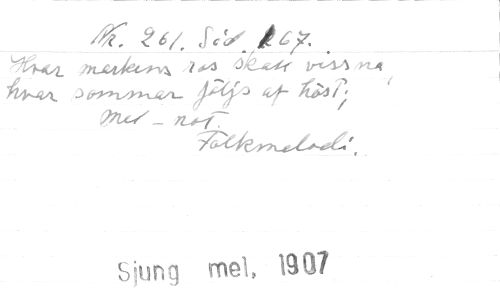 Nr. 261. Sid. 267.
Hvar markens ros skall vissna,
hvar sommar följs af höst;
Mel - not.
Folkmelodi.
Sjung mel, 1907